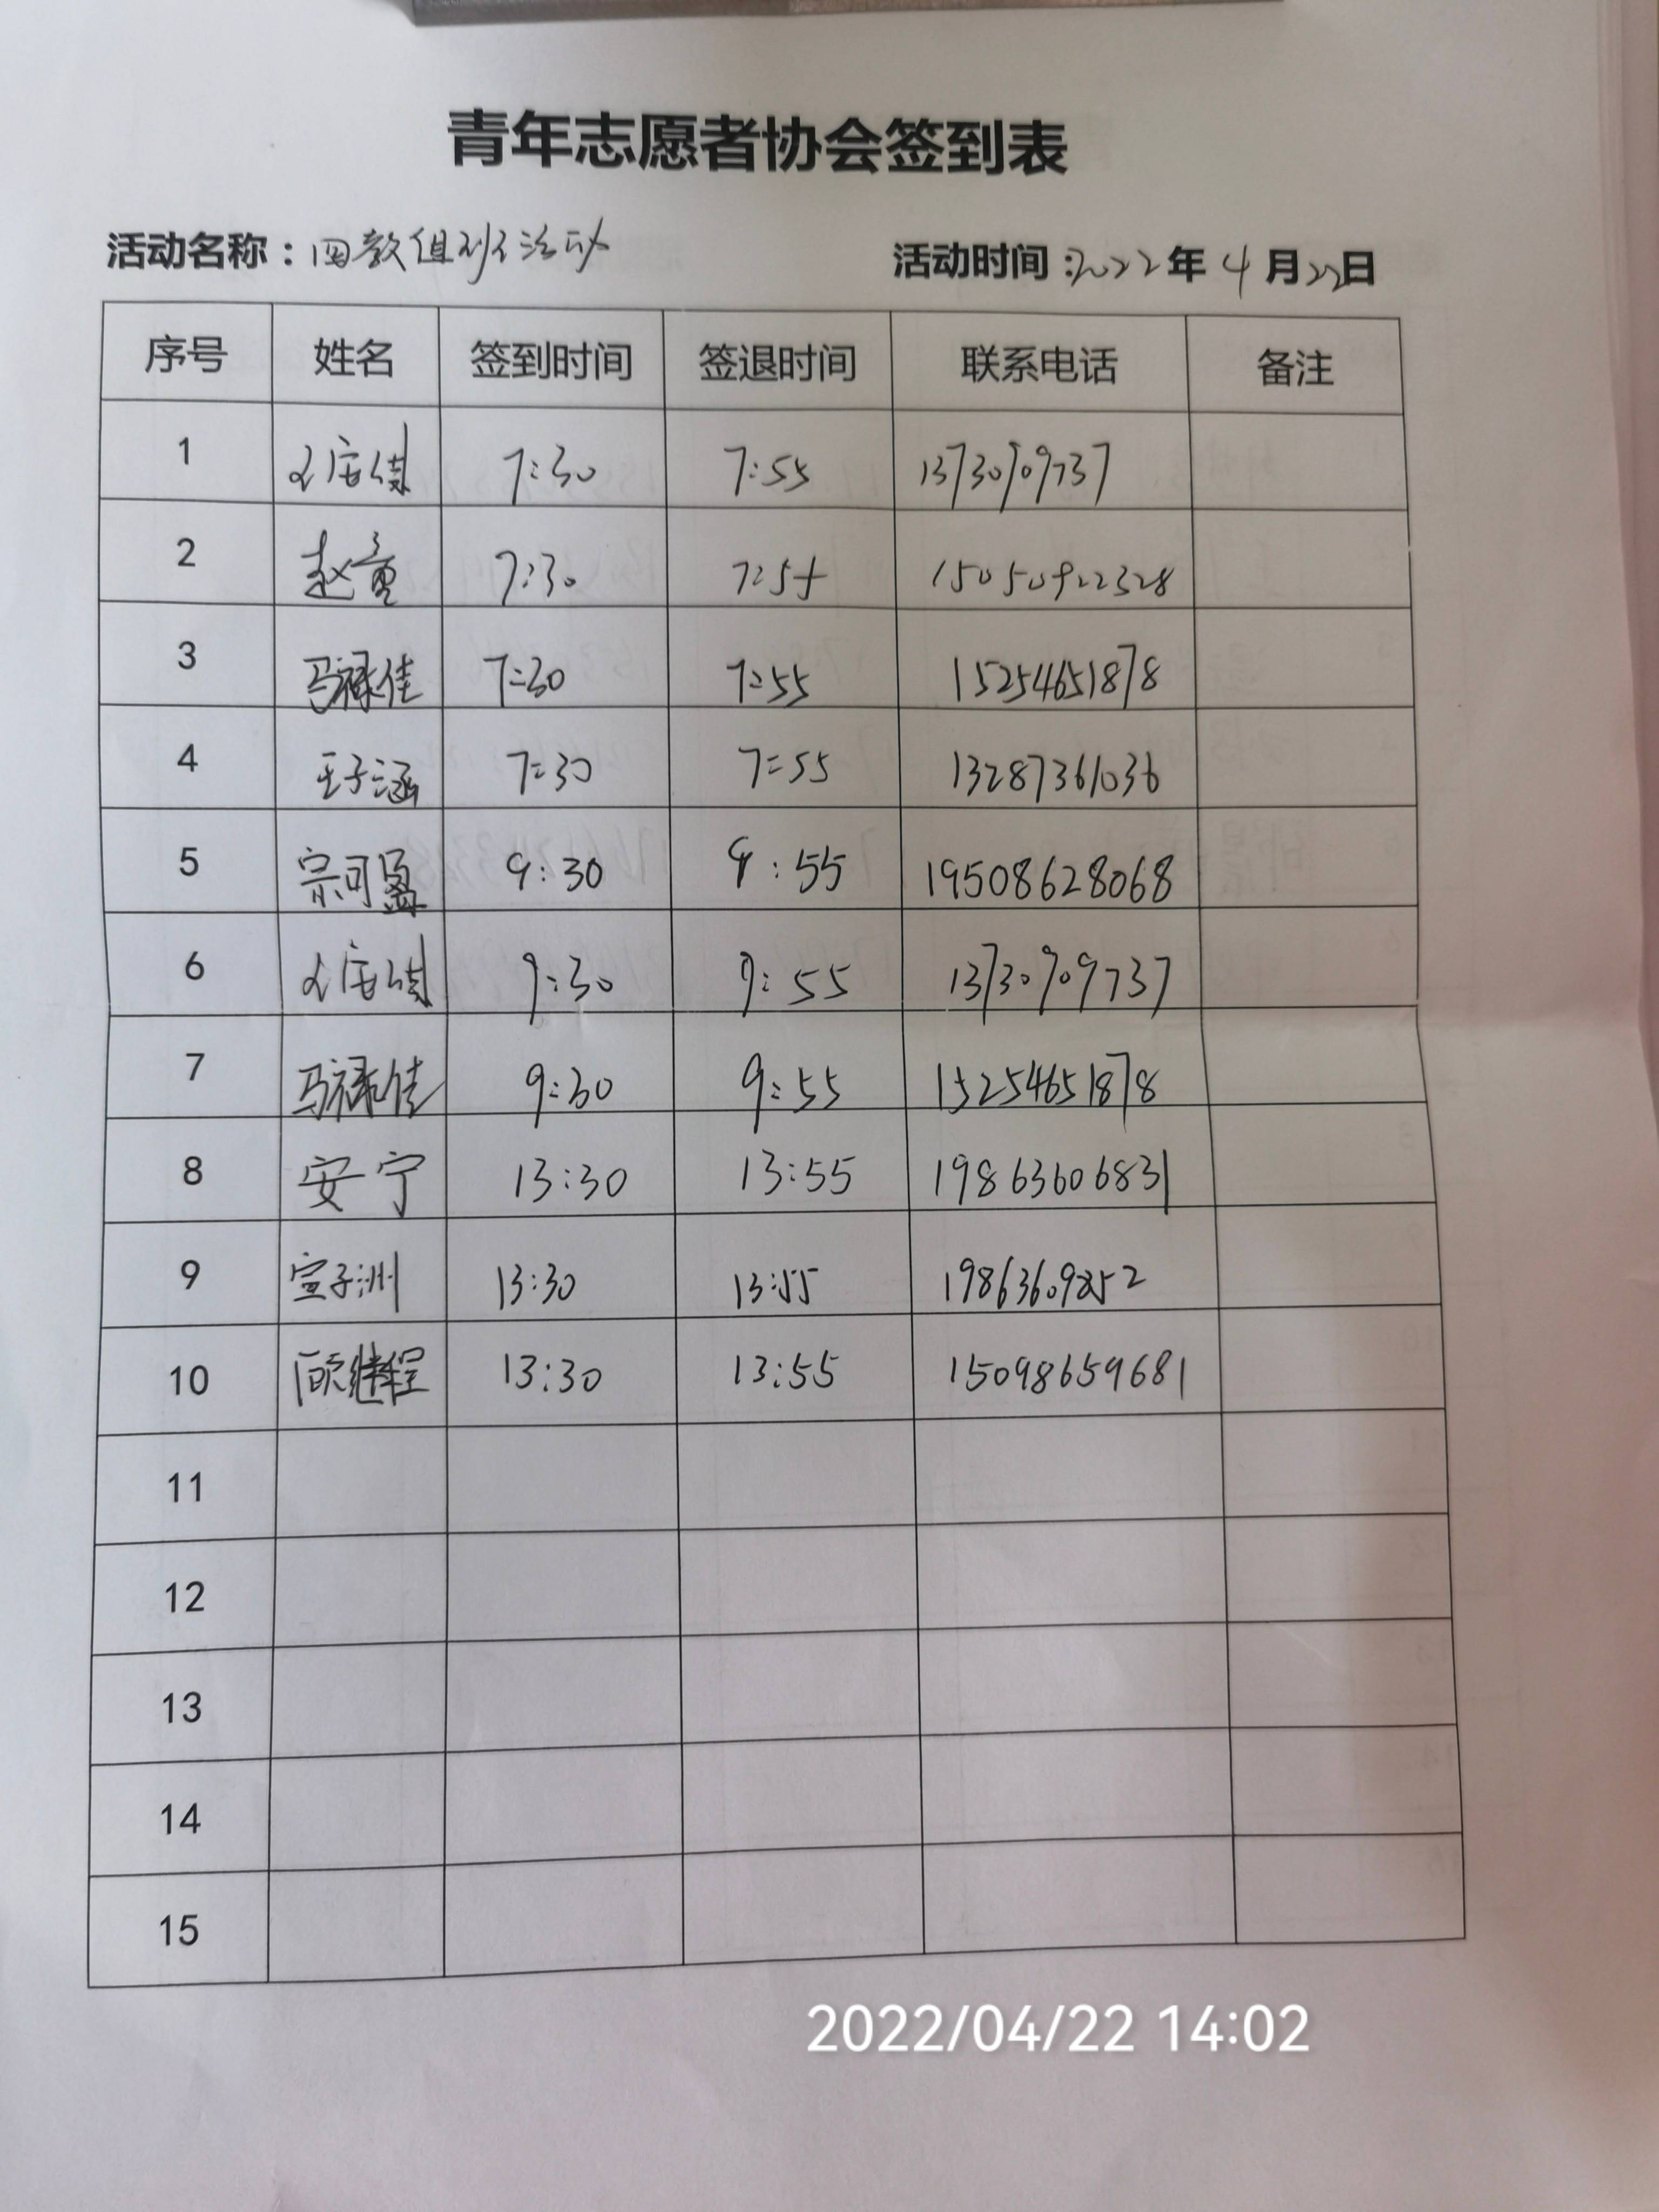 青年志愿者协会签到表
活动名称：四教组织活动 活动时间：2022年4月22日
序号 姓名 签到时间 签退时间 联系电话 备注
1 7:30 7:55 13730909737
2 赵童 7:30 7:55 15050922328
3 马禄佳 7:30 7:55 15254651878
4 王子涵 7:30 7:55 13287361036
5 宗可盈 9:30 9:55 19508628068
6 9:30 9:55 13730909737
7 马禄佳 9:30 9:55 15254651878
8 安宁 13:30 13:55 19863606831
9 宣子洲 13:30 13:55
10 顾继程 13:30 13:55 15098659681
11
12
13
14
15
2022/04/22 14:02